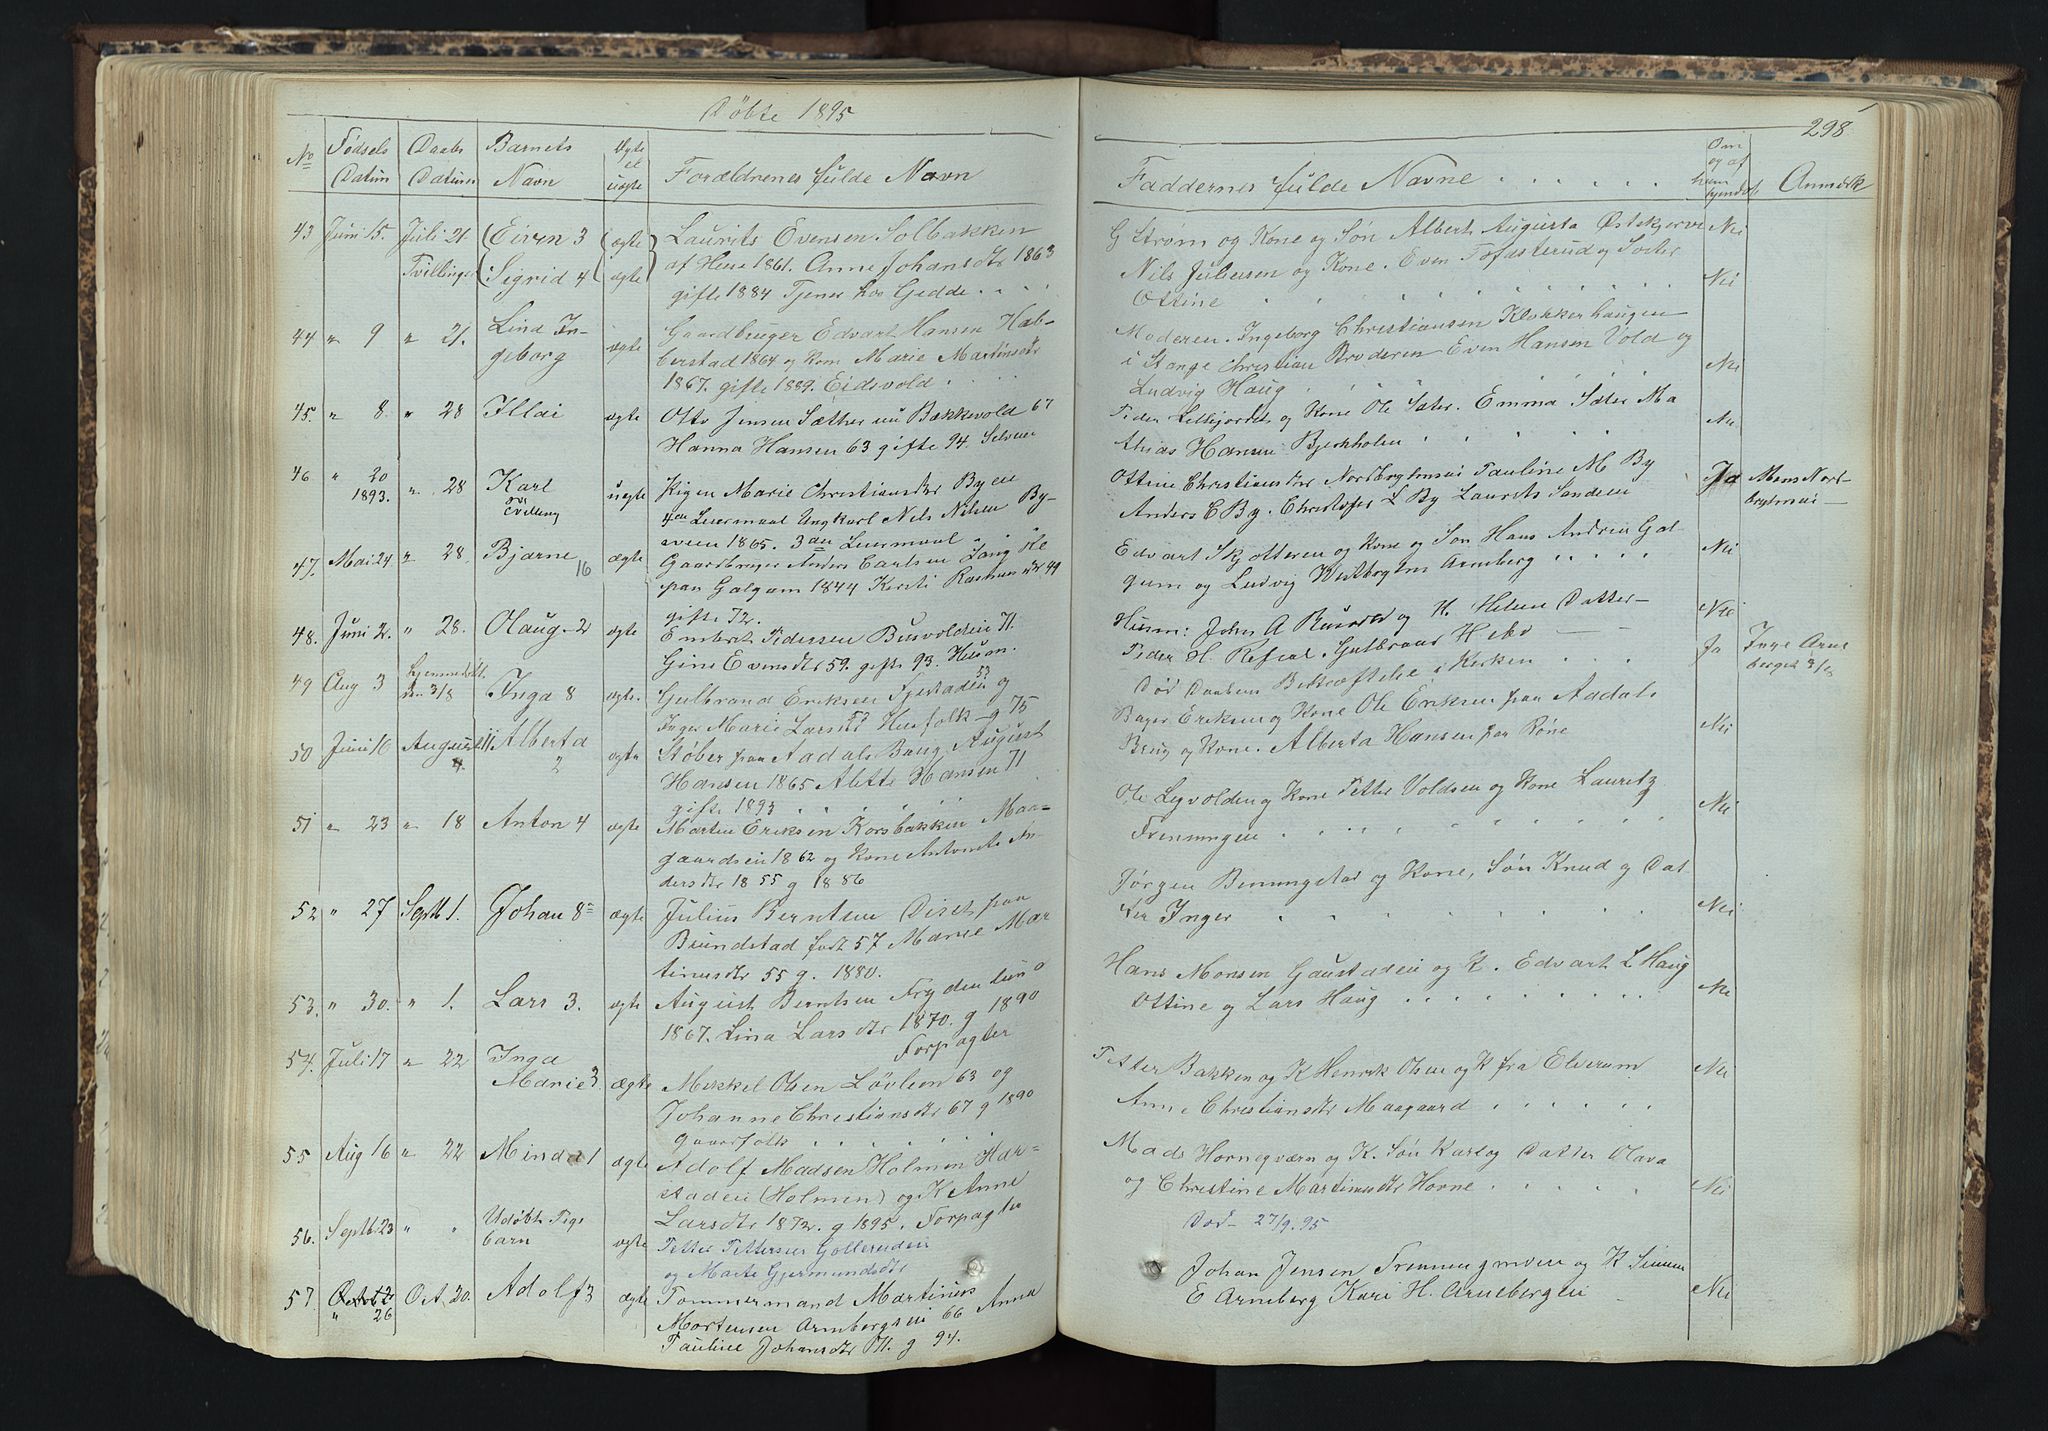 Døbte 1895
298
No
Fødsels Datum
Daabs Datum
Barnets Navn
Ægte el uægte
Forældrenes fulde Navn
Faddernes fulde Navne . . . . . .
Om og af hvem
Anmærk
43 Juni 15. Juli 21 Eiven 3 ægte Laurits Evensen Solbakken
Tvillinger Sigrid 4 ægte af Heie 1861. Anne Johansdtr 1863
gifte 1884 Tjener hos Gedde . . . .
G Strøm og Kone og Søn Albert Augusta Østskjerve Nei
Nils Juliusen og Kone. Even og Søster Nei
Ottine
44 " 9 " 21. Lina In- ægte Gaardbruger Edvart Hansen Hab-
geborg berstad 1864 og Kone Marie Martinsdtr
1867. gifte 1889. Eidsvold . . . .
Moderen. Ingeborg Christiansen Klokkerhaugen
i Stange Christian Broderen Even Hansen Vold og Nei
Ludvig Haug
45. " 8. " 28 ægte Otto Jensen Sæther nu Bakkevold 67
Hanna Hansen 63 gifte 94. Selveier
Peder og Kone Ole Sæter. Emma Sæter Ma Nei
thias Hansen Bjerkholen
46 " 20 " 28 Karl uægte Pigen Marie Christiansdtr Byeie
1893. Tvilling 4de Leiermaal Ungkarl Nils Nilsen By-
eie 1865. 3die Leiermaal . .
Ottine Christiansdtr Nordbyglmoei Pauline M By Ja
Anders E By. Christofer L By Laurits Sandeie
47. Mai 24 " 28. Bjarne 16 ægte Gaardbruger Anders Carlsen Lang
paa Galgum 1844 Kersti Rasmusdtr 49
gifte 72.
Edvart Skjotteren og Kone og Søn Hans Andrea Gal- Nei
gum og Ludvig Arneberg
48. Juni 2. " 28. Olaug. 2 ægte Embret Pedersen Busvoldeie 71.
Gine Evensdtr 59. gifte 93. Husm.
Husm: John A og H. Helene Datter- Nei
Peder H. Gulbrand
49 Aug 3 Hjemmedøbt den 3/8 Inga 8 ægte. Gulbrand Eriksen og
Inger Marie Larsdtr Husfolk - g 75
Død Daaben Bekræftelse i Kirken . . . Ja Inge Arne
bergei 3/8
50 Juni 16 August 11 Alberta ægte Støber paa Aadals Brug August
4. 2 Hansen 1865 Alette Hansen 71
gifte 1893
Bager Eriksen og Kone Ole Eriksen paa Aadals
Brug og Kone. Alberta Hansen paa Røne Nei
51 " 23 " 18 Anton 4 ægte Martin Eriksen Korsbakken Maa-
gaardseie 1862 og Kone Antonette An-
dersdtr 1855 g 1886
Ole Legvolden og Kone Petter Voldsen og Kone Lauritz Nei
52 " 27 Septb 1. Johan 8 ægte Julius Berntsen Diset paa
Brundstad født 57 Marie Mar
tinusdtr 55 g. 1880.
Jørgen Benningstad og Kone, Søn Knud og Dat
ter Inger Nei
53. " 30. " 1. Lars 3. ægte August Berntsen Frydenlund
1867. Lina Larsdtr 1870. g 1890
Forpagter
Hans Monsen Gaustadeie og K. Edvart L Haug
Ottine og Lars Haug . . . . . . . . . Nei
54. Juli 17 " 22 Inga
Marie 3. ægte Mekkel Olsen Løvlien 63 og
Johanne Christiansdtr 67 g 1890
Gaardfolk
Petter Bakken og K Henrik Olsen og K fra Elverum Nei
Anne Christiansdtr Maagaard . . . . . .
55 Aug 16 " 22 Minda 1 ægte Adolf Madsen Holmen Har-
stadeie (Holmen) og K Anne
Larsdtr 1872. g 1895. Forpagter
Mads Hornegværn og K. Søn Karl og Datter Olava
og Christine Martinusdtr Horne . . . . . Nei
56. Septb. 23 " " Udøbt Pige
barn ægte Petter Pettersen Gollereideie
og Marte Gjermundsdtr
Død 27/9. 95
57 Octob 2 Oct. 20. Adolf 3 ægte Tømmermand Martinus
" 26 Mortensen Arnebergseie 66 Anna
Pauline Johansdtr 71. g 94.
Johan Jensen og K Simen
E Arneberg Kari H. Arnebergeie Nei